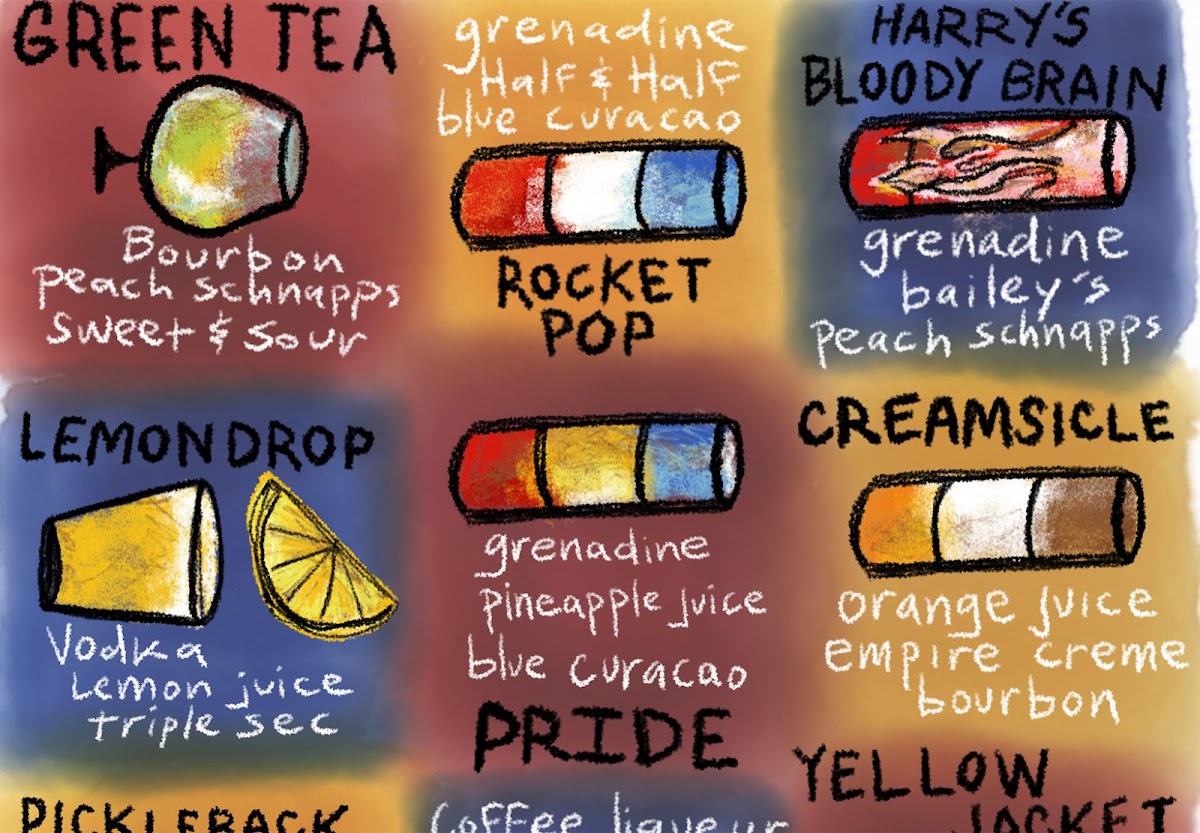 GREEN TEA
Bourbon
Peach schnapps
Sweet & Sour
grenadine
Half & Half
blue curacao
ROCKET
POP
HARRY'S
BLOODY BRAIN
grenadine
bailey's
Peach schnapps
LEMONDROP
Vodka
Lemon juice
triple sec
grenadine
pineapple juice
blue curacao
PRIDE
CREAMSICLE
orange juice
empire creme
bourbon
PICKLEBACK
Coffee liqueur
YELLOW
JACKET